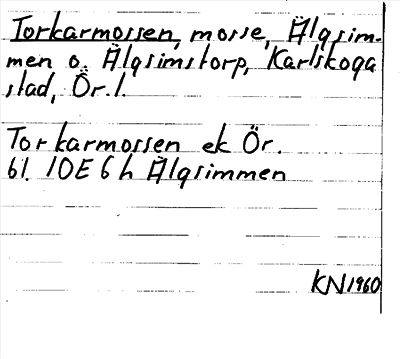 Torkarmossen, mosse, Älgsim-
men o. Älgsimstorp, Karlskoga
stad, Ör. l.
Torkarmossen ek Ör.
61. 10E 6h Älgsimmen
KN 1960